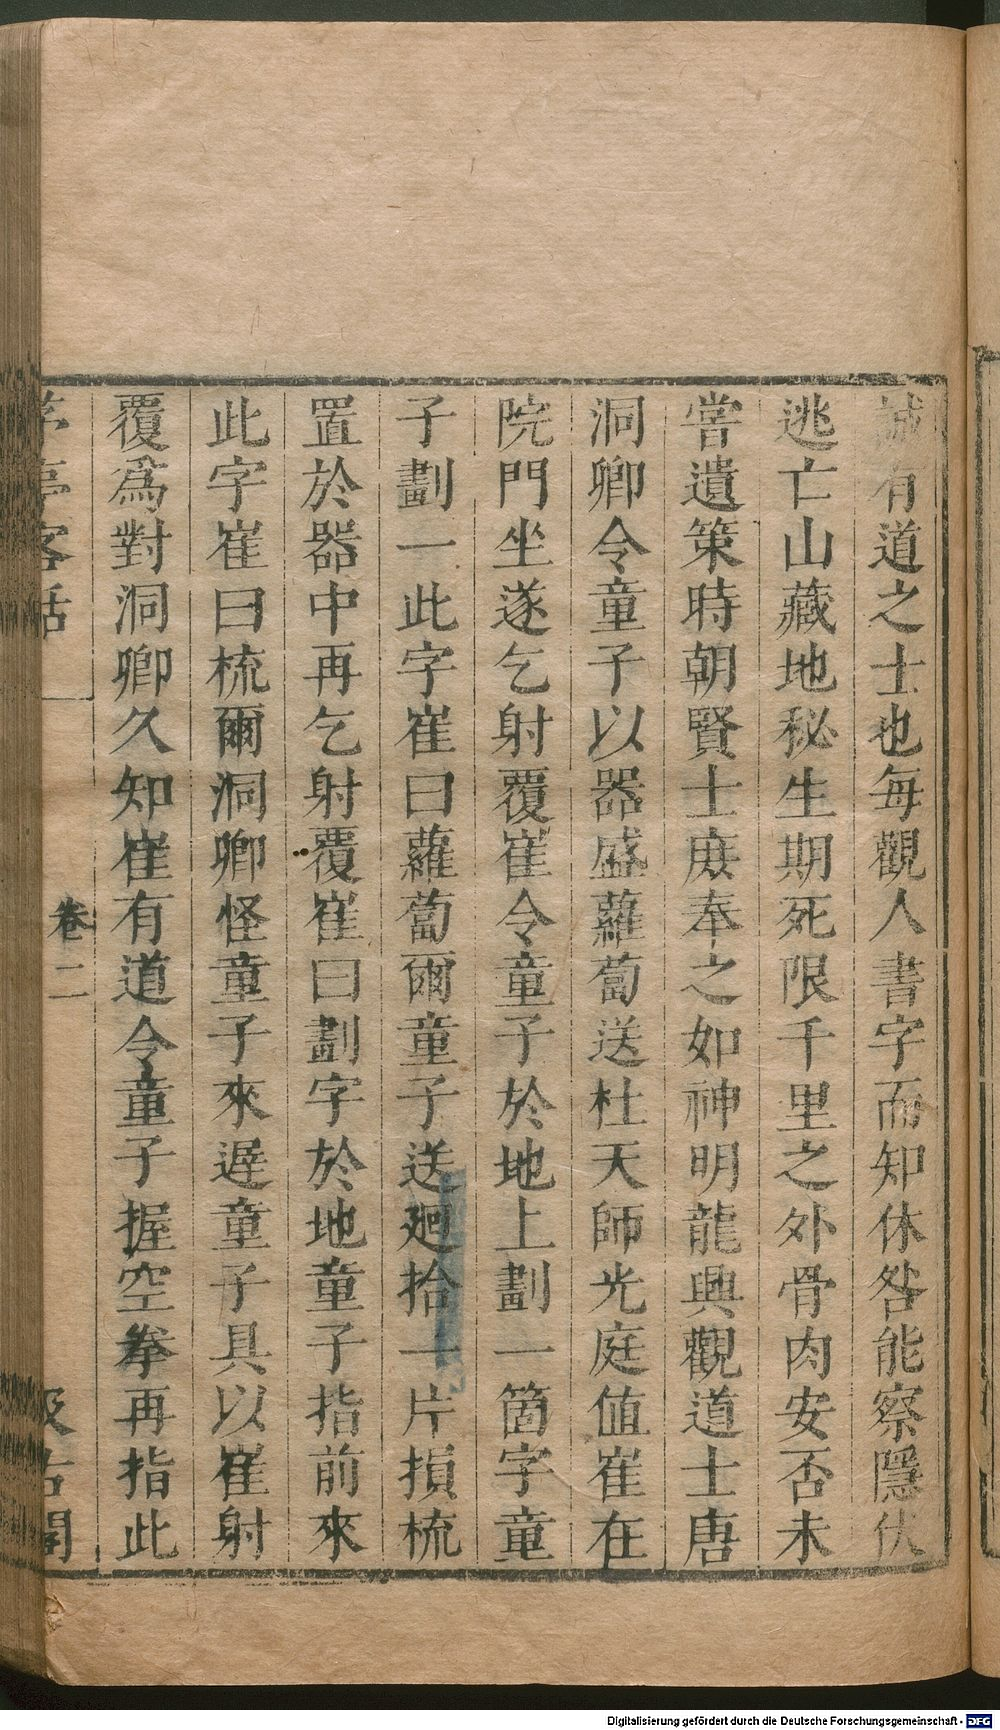 誠有道之士也每觀人書字而知休咎能察隱伏
逃亡山藏地秘生期死限千里之外骨肉安否未
嘗遺策時朝賢士庻奉之如神明龍興觀道士唐
洞卿令童子以器盛蘿蔔送杜天師光庭值崔在
院門坐遂乞射覆崔令童子於地上劃一箇字童
子劃一此字崔曰蘿蔔爾童子送廻拾一片損梳
置於器中再乞射覆崔曰劃字於地童子指前來
此字崔曰梳爾洞卿怪童子來遲童子具以崔射
覆爲對洞卿久知崔有道令童子握空拳再指此
茅亭客話
卷二
汲古閣
Digitalisierung gefördert durch die Deutsche Forschungsgemeinschaft - DFG